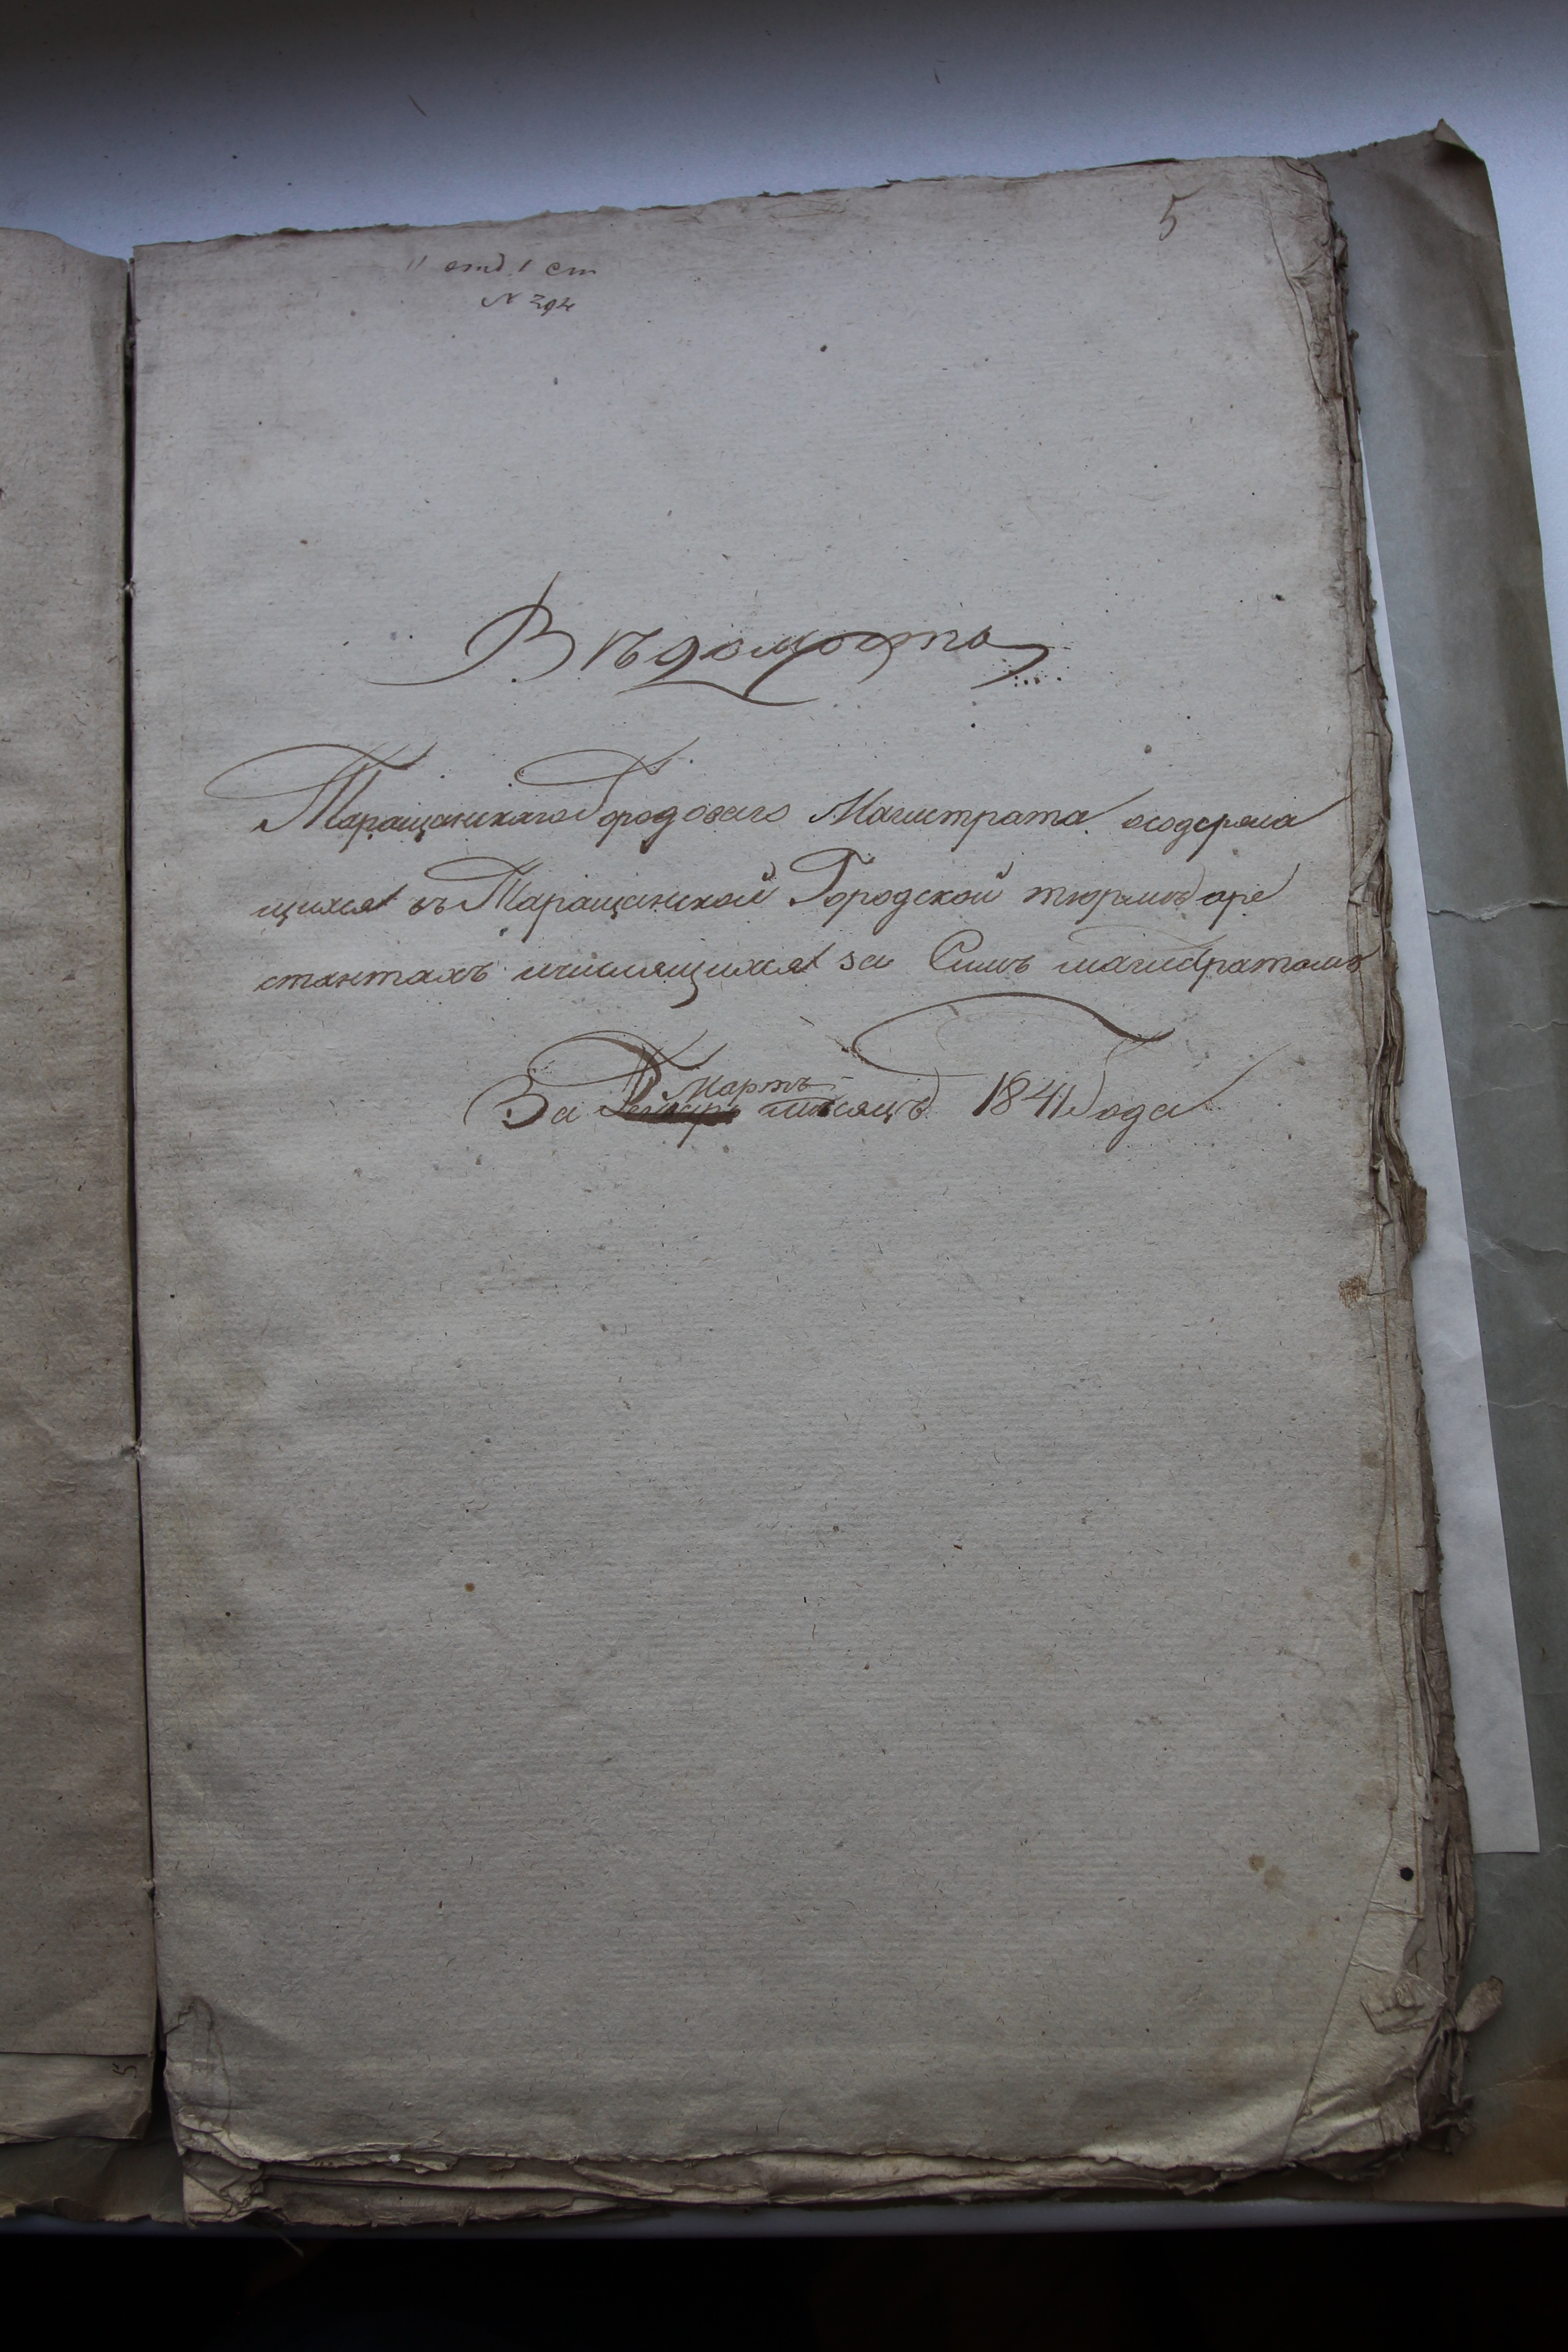 5
11 отд 1 ст
N 394
Вѣдомость
Таращанскаго Городоваго Магистрата осодержа
щихся въ Таращанской Городской тюрьмѣ аре
стантахъ ичислящихся за Симъ магистратомъ
Мартъ
За мѣсяцъ 1841 Года